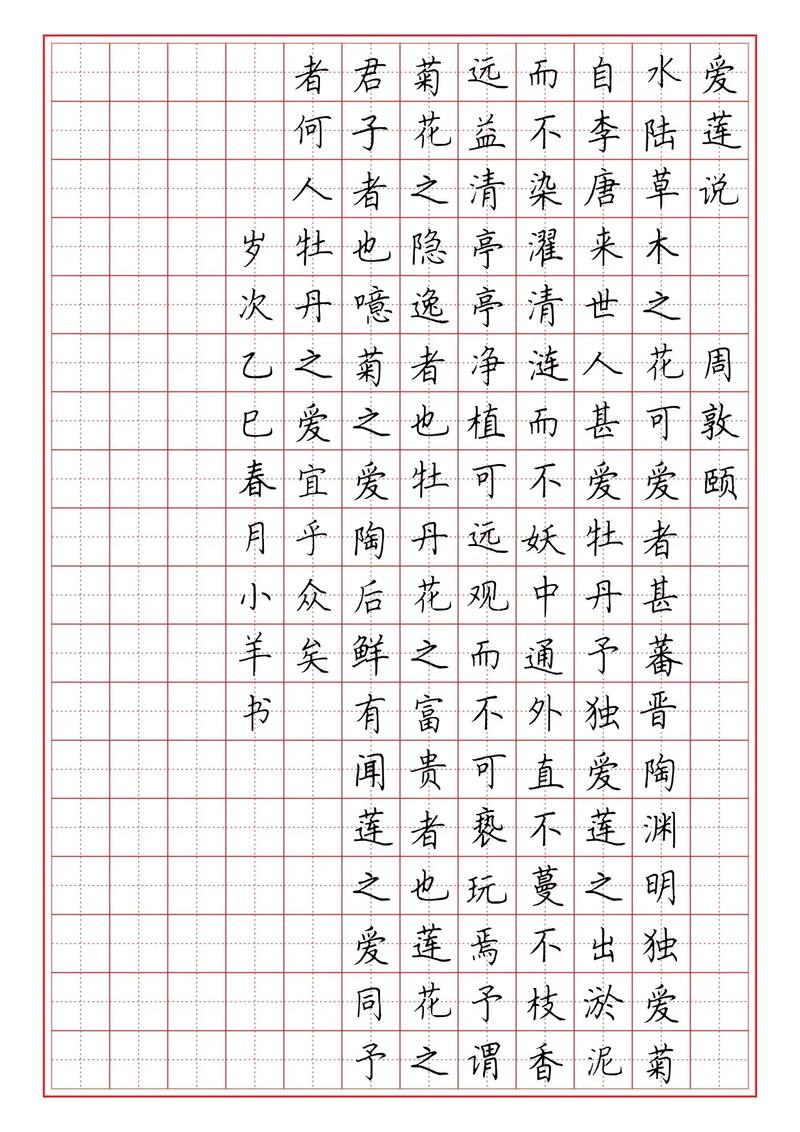 爱莲说 周敦颐
水陆草木之花可爱者甚蕃晋陶渊明独爱菊
自李唐来世人甚爱牡丹予独爱莲之出淤泥
而不染濯清涟而不妖中通外直不蔓不枝香
远益清亭亭净植可远观而不可亵玩焉予谓
菊花之隐逸者也牡丹花之富贵者也莲花之
君子者也噫菊之爱陶后鲜有闻莲之爱同予
者何人牡丹之爱宜乎众矣
岁次乙巳春月小羊书